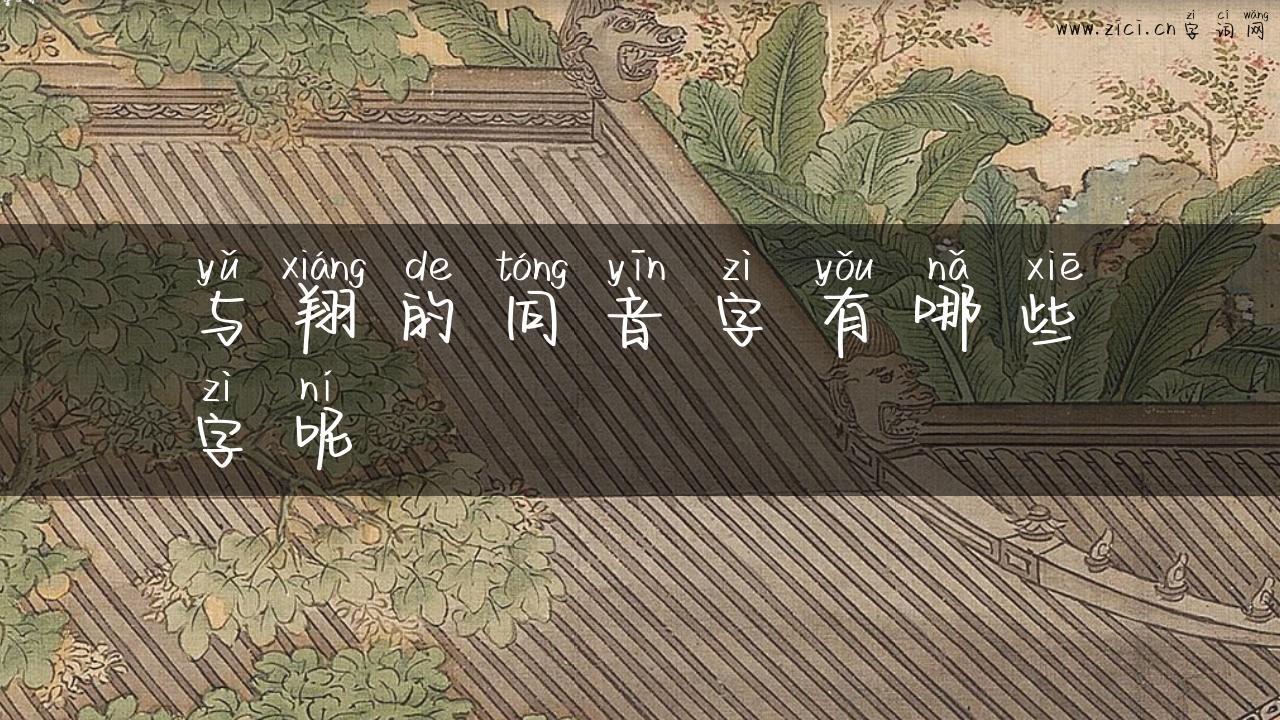 zì cí wǎng
www.zici.cn 字 词 网
yǔ xiáng de tóng yīn zì yǒu nǎ xiē
与 翔 的 同 音 字 有 哪 些
zì ní
字 呢